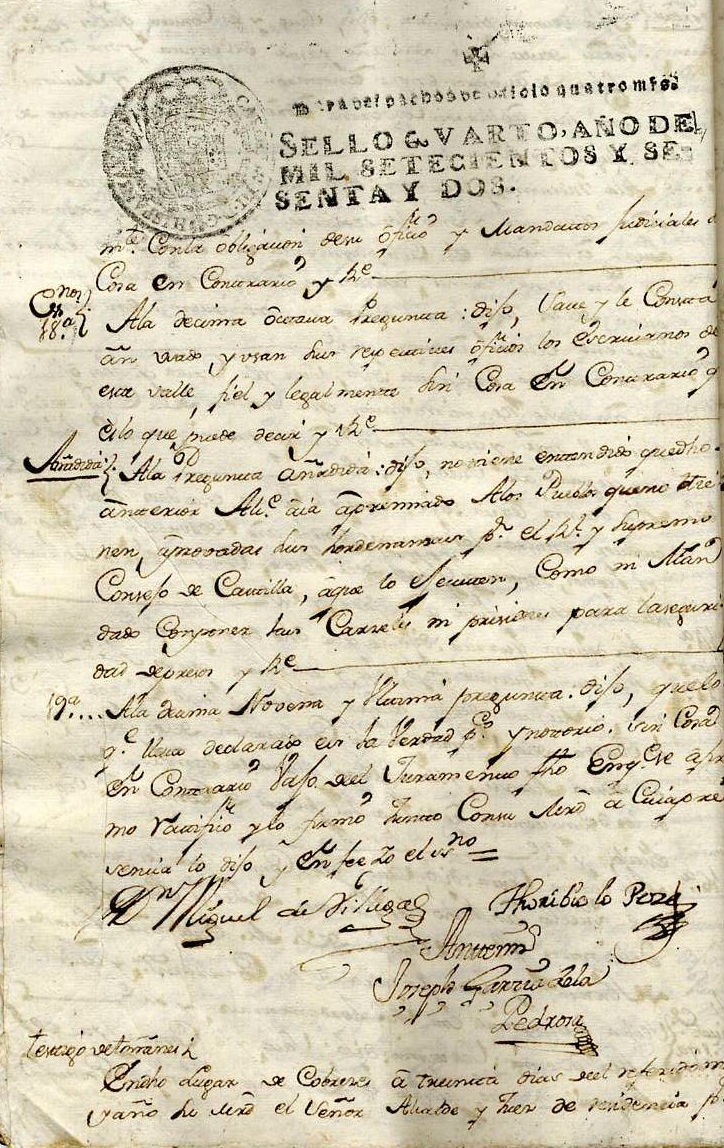 para despachos de oficio quatro mrs.
SELLO QVARTO, AÑO DE
MIL SETECIENTOS Y SE-
SENTA Y DOS.
mte. Conla obligacion desu ofiº y Mandatos Judiciales
Cosa en Contrario y Re
18.ª Ala decima octaua Pregunta: dijo, Saue y le Consta
an usado, y usan sus respectiuos ofiçios los escriuanos de
este valle, fiel y legalmente sin Cosa En Contrario q
es lo que puede decir y Re
Añadida Ala Pregunta Añadida: dijo, no tiene entendido que dho
anterior Alce. aia apremiado Alos Pueblos que no tie
nen, aprouadas sus hordenanzas pr. el Rl. y Supremo
Consejo de Castilla, aque lo Jecuten, Como ni Man
dado Componer las Carzeles ni prisiones para la seguri
dad de presos y Re
19ª Ala decima Novena y Vltima pregunta: dijo, que lo
qe. lleua declarado es la Verdad pco. y notorio, sin Cosa
En Contrario Vajo del Juramento fho En qe. se afir
mo Ratificó y lo firmó Junto Con su mrd a Cuia pre
sencia lo dijo y En fee Yo el essno =
Dn Miguel de Villegas Thoribio lo Peza
Antemi
Joseph Garzia dela
Pedrosa
testigo
En dho Lugar de Cobreces a treinta dias del referido m
y año su mrd el Señor Alcalde y Juez de residencia pr